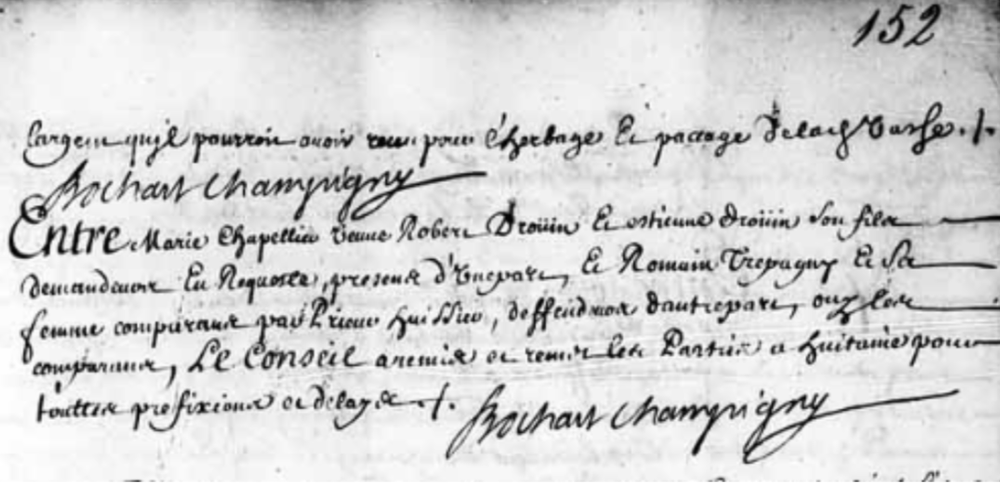 152
Largent quil pourroit avoir receu pour Lherbage Et pacage de lad. Vache ./.
Bochart Champigny
Entre Marie Chapellier veuve Robert Droüin Et estienne droüin Son fils
demandeurs En Requeste, presens d'Une part, Et Romain Trepagny Et Sa
femme comparans par Prieur huissier, deffendeurs dautre part, ouy les
comparans, Le Conseil a remis et remet les Parties a huitaine pour
touttes prefixions et delays ./. Bochart Champigny